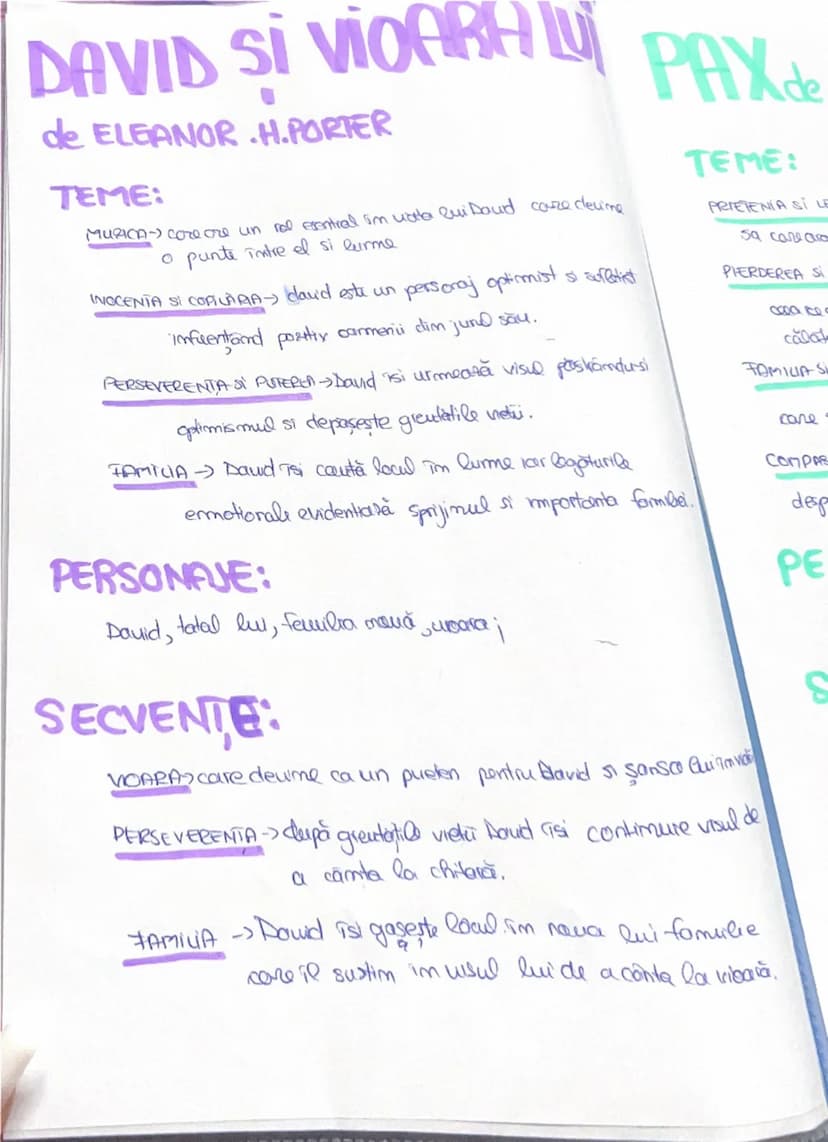 DAVID și VIOARA LUI
de ELEANOR .H.PORTER
TEME:
MUZICA → care are un rol central în viața lui David care devine
o punte între el si lume
INOCENTA SI COPILARIA → david este un personaj optimist si sufletist
influențând pozitiv oamenii din jurul său.
PERSEVERENTA SI PUTEREA → David isi urmează visul păstrându-si
optimismul si depașește greutățile vieții.
FAMILIA → David isi caută locul în lume iar legăturile
emotionale evidentiază sprijinul si importanta familiei.
PERSONAJE:
David, tatal lui, familia nouă, vioara;
SECVENȚE:
VIOARA → care devine ca un prieten pentru David si șansa lui în viață
PERSEVERENTA → după greutățile vietii David isi continure visul de
a cânta la chitară.
FAMILIA → David isi gașește locul în noua lui familie
care îl sustin in visul lui de a cânta la vioară.
PAX de
TEME:
PRIETENIA SI LE
sa care are
PIERDEREA SI
călăt
FAMILIA SI
care
COMPAS
desp
PE
S